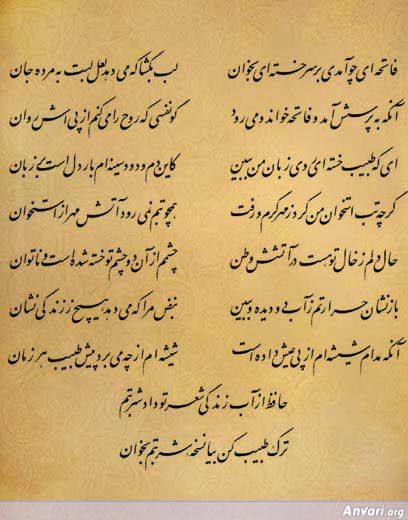 فاتحه ای چو آمدی بر سر خسته ای بخوان لب بگشا که می دهد لعل لبت به مرده جان
آنکه به پرسش آمد و فاتحه خواند و می رود گو نفسی که روح را می کنم از پی اش روان
ای که طبیب خسته ای روی زبان من ببین کاین دم و دود سینه ام بار دل است بر زبان
گرچه تب استخوان من کرد ز مهر گرم و رفت همچو تبم نمی رود آتش مهر از استخوان
حال دلم ز خال تو هست در آتشش وطن چشمم از آن دو چشم تو خسته شده است و ناتوان
بازنشان حرارتم ز آب دو دیده و ببین نبض مرا که می دهد هیچ ز زندگی نشان
آنکه مدام شیشه ام از پی عیش داده است شیشه ام از چه می برد پیش طبیب هر زمان
حافظ از آب زندگی شعر تو داد شربتم
ترک طبیب کن بیا نسخه شربتم بخوان
Anvari.org